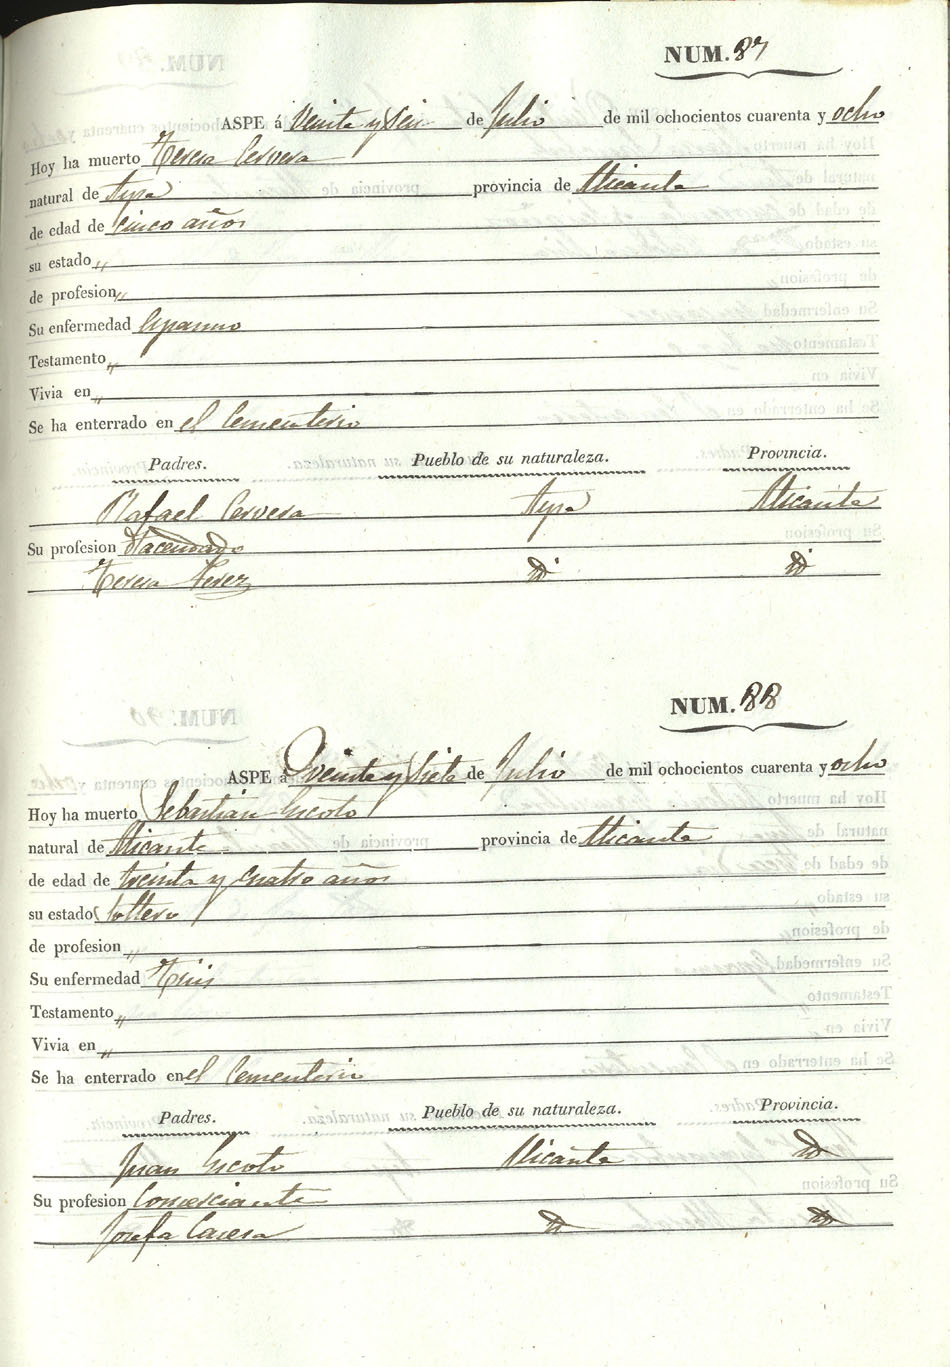 NUM. 87
ASPE á Veinte y Seis de Julio de mil ochocientos cuarenta y ocho
Hoy ha muerto Teresa Cervera
natural de Aspe provincia de Alicante
de edad de cinco años
su estado „
de profesion „
Su enfermedad Espasmo
Testamento „
Vivia en „
Se ha enterrado en el Cementerio
Padres. Pueblo de su naturaleza. Provincia.
Rafael Cervera Aspe Alicante
Su profesion Hacendado
Teresa Perez id id
NUM. 88
ASPE á veinte y Siete de Julio de mil ochocientos cuarenta y ocho
Hoy ha muerto Sebastián Escoto
natural de Alicante provincia de Alicante
de edad de treinta y cuatro años
su estado Soltero
de profesion „
Su enfermedad Tisis
Testamento „
Vivia en „
Se ha enterrado en el Cementerio
Padres. Pueblo de su naturaleza. Provincia.
Juan Escoto Alicante id
Su profesion Comerciante
Josefa id id